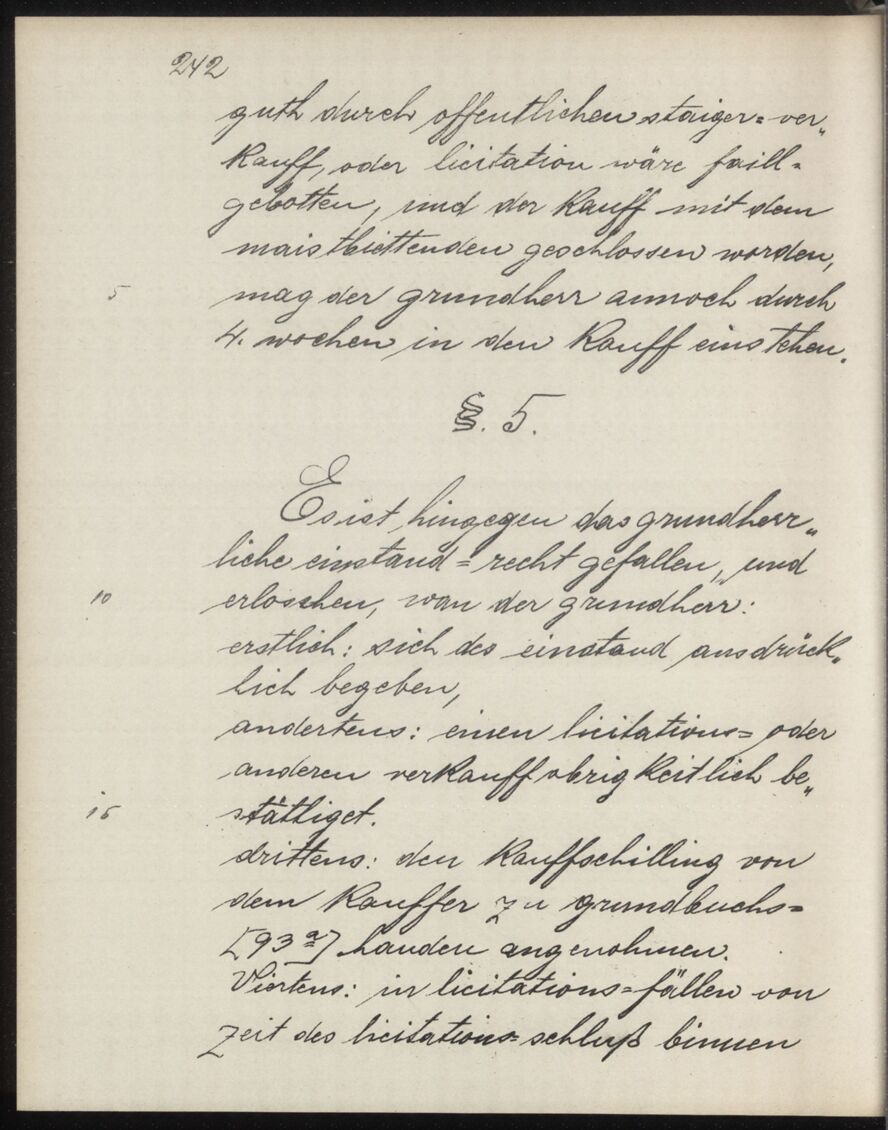 242
guth durch offentlichen staiger=ver„
kauff, oder licitation wäre faill=
gebotten, und der kauff mit dem
maistbiettenden geschlossen worden,
5 mag der grundherr annoch durch
4. wochen in den kauff einstehen.
§. 5.
Es ist hingegen das grundherr„
liche einstand=recht gefallen, und
10 erloschen, wan der grundherr:
erstlich: sich des einstand ausdrück„
lich begeben,
andertens: einen licitations= oder
anderen verkauff obrigkeitlich be„
15 stättiget.
drittens: den kauffschilling von
dem kauffer zu grundbuchs=
[93ª] handen angenohmen.
Viertens: in licitations=fällen von
zeit des licitations=schluß binnen